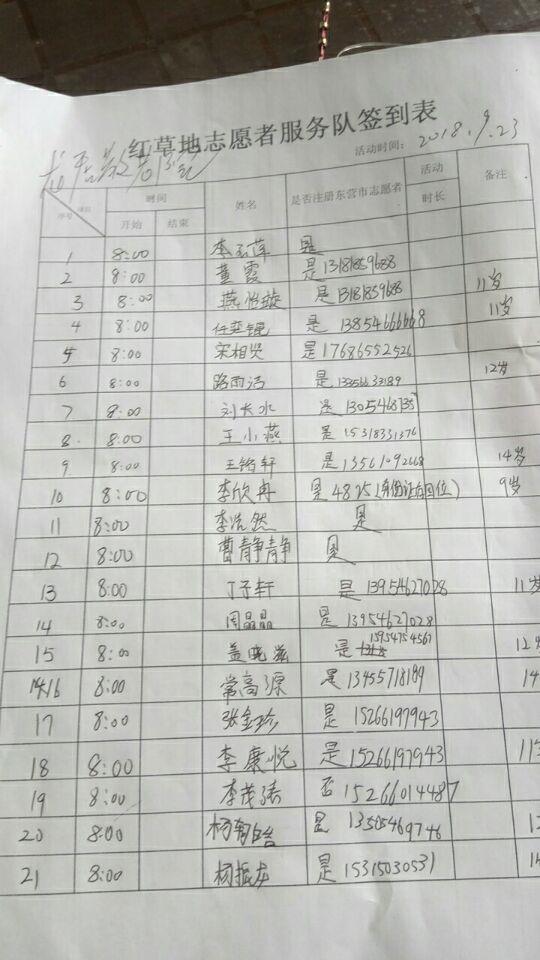 红草地志愿者服务队签到表
活动时间: 2018.9.23
序号 项目 时间 姓名 是否注册东营市志愿者 活动时长 备注
开始 结束
1 8:00 李玉莲 是
2 8:00 董霞 是13181859688
3 8:00 燕怡璇 是13181859688 11岁
4 8:00 任奕锟 是13854666668 11岁
5 8:00 宋相贤 是17686552526
6 8:00 路雨洁 是 12岁
7 8:00 刘长水 是
8 8:00 王小燕 是15318331376
9 8:00 王锴轩 是13561092668 14岁
10 8:00 李欣冉 是4825(身份证后四位) 9岁
11 8:00 李浩然 是
12 8:00 曹静静 是
13 8:00 丁子轩 是13954627028 11岁
14 8:00 周晶晶 是13954627028
15 8:00 盖晓 是15954754567 12岁
16 8:00 常高源 是13455718189 14
17 8:00 张金珍 是15266197943
18 8:00 李康悦 是15266197943 11岁
19 8:00 李茂涛 否15266014487
20 8:00 是13505469746 12
21 8:00 杨振东 是15315030531 14